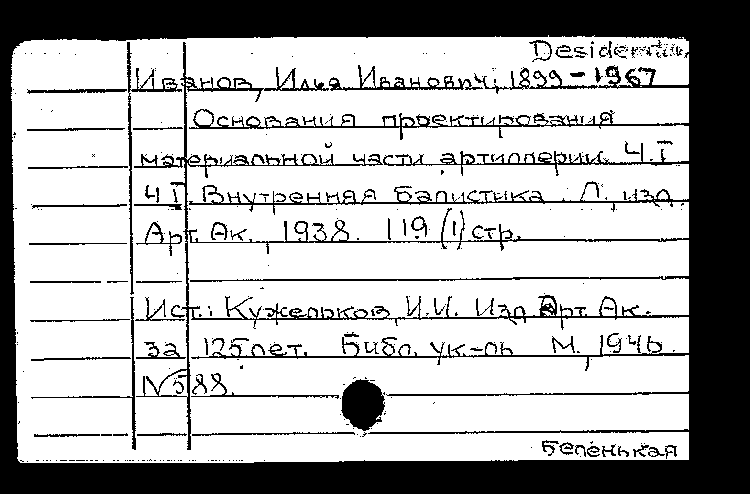 Desiderata
Иванов, Илья Иванович; 1899-1967
Основания проектирования
материальной части артиллерии. Ч.I
Ч I. Внутренняя балистика. Л., изд.
Арт. Ак., 1938. 119 (1) стр.
Ист.: Кужельков, И.И. Изд. Арт. Ак.
за 125 лет. Библ. ук-ль М., 1946.
N 588.
Беленькая